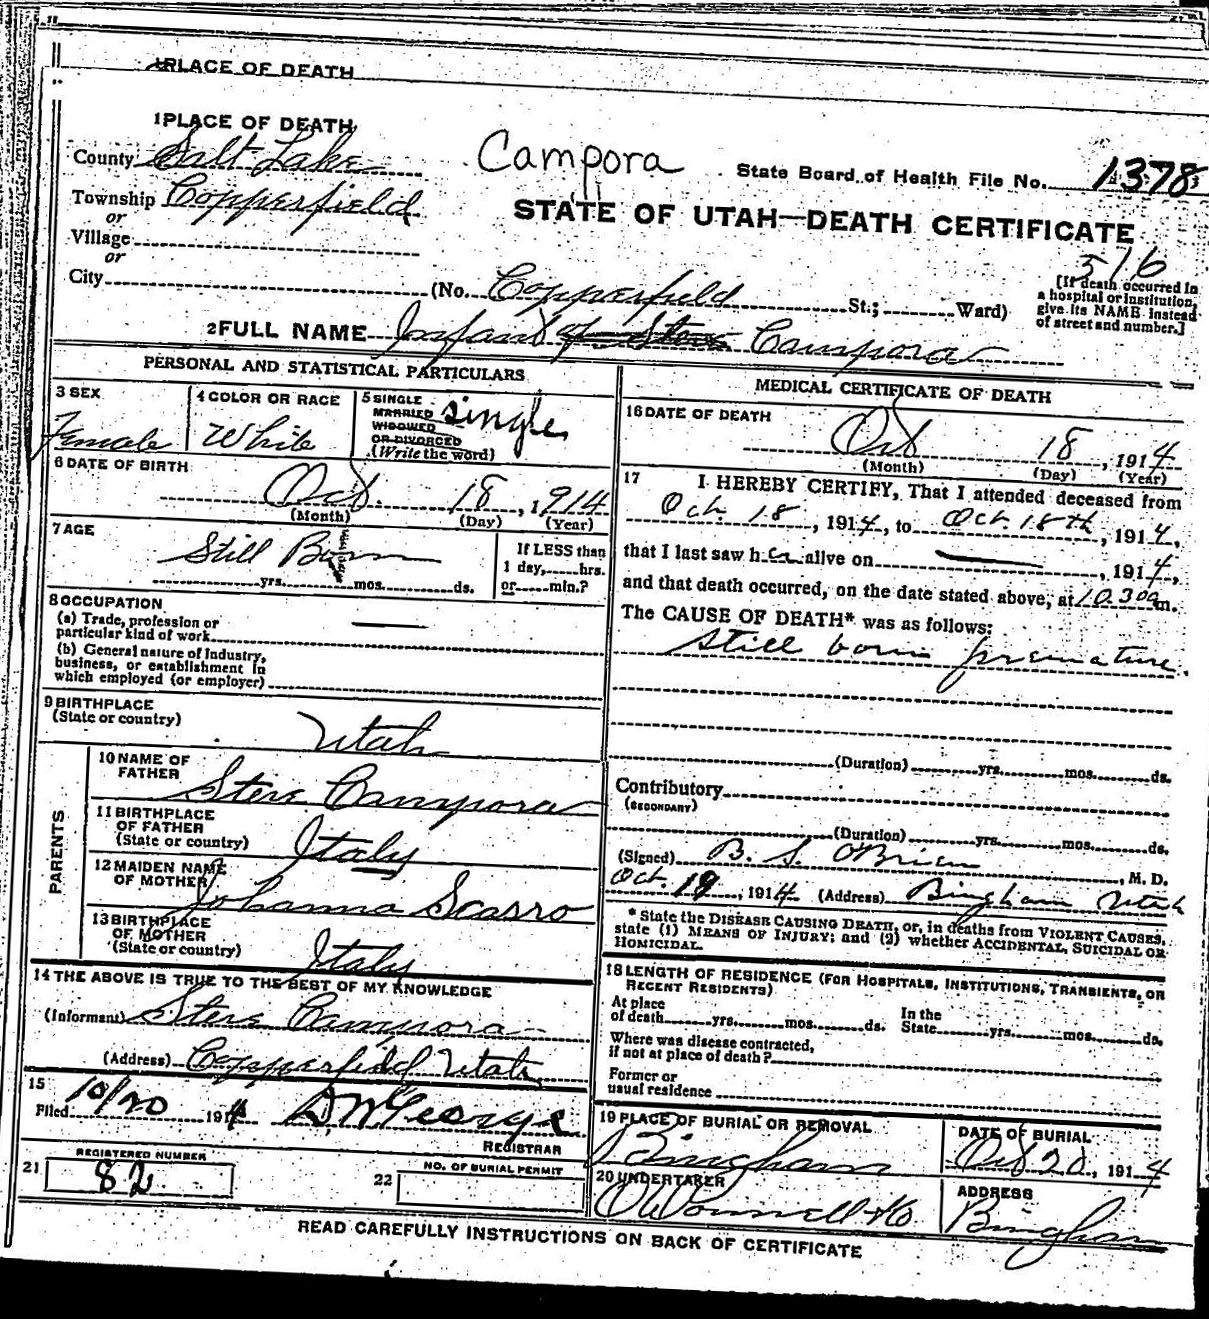 1 PLACE OF DEATH
1 PLACE OF DEATH
County Salt Lake
Campora
State Board of Health File No. 1378
Township Copperfield
or
STATE OF UTAH—DEATH CERTIFICATE
Village
or
516
City (No. Copperfield St.; Ward)
[If death occurred in
a hospital or institution,
give its NAME instead
of street and number.]
2 FULL NAME Infant of Steve Campora
PERSONAL AND STATISTICAL PARTICULARS
3 SEX
Female
4 COLOR OR RACE
White
5 SINGLE
MARRIED
WIDOWED
OR DIVORCED
(Write the word)
single
6 DATE OF BIRTH
Oct. 18, 1914
(Month) (Day) (Year)
7 AGE
Still Born
yrs. mos. ds.
If LESS than
1 day, hrs.
or min.?
8 OCCUPATION
(a) Trade, profession or
particular kind of work
(b) General nature of industry,
business, or establishment in
which employed (or employer)
9 BIRTHPLACE
(State or country)
Utah
PARENTS
10 NAME OF
FATHER
Steve Campora
11 BIRTHPLACE
OF FATHER
(State or country)
Italy
12 MAIDEN NAME
OF MOTHER
Johanna Scarro
13 BIRTHPLACE
OF MOTHER
(State or country)
Italy
14 THE ABOVE IS TRUE TO THE BEST OF MY KNOWLEDGE
(Informant) Steve Campora
(Address) Copperfield Utah
15
Filed 10/20 1914
REGISTRAR
REGISTERED NUMBER
21 82
NO. OF BURIAL PERMIT
22
MEDICAL CERTIFICATE OF DEATH
16 DATE OF DEATH
Oct 18, 1914
(Month) (Day) (Year)
17 I HEREBY CERTIFY, That I attended deceased from
Oct. 18, 1914, to Oct 18th, 1914,
that I last saw her alive on , 1914,
and that death occurred, on the date stated above, at 10.30 a m.
The CAUSE OF DEATH* was as follows:
Still born premature.
(Duration) yrs. mos. ds.
Contributory
(SECONDARY)
(Duration) yrs. mos. ds.
(Signed) B. S. O'Brien, M. D.
Oct. 19, 1914 (Address) Bingham Utah
* State the DISEASE CAUSING DEATH, or, in deaths from VIOLENT CAUSES,
state (1) MEANS OF INJURY; and (2) whether ACCIDENTAL, SUICIDAL OR
HOMICIDAL.
18 LENGTH OF RESIDENCE (FOR HOSPITALS, INSTITUTIONS, TRANSIENTS, OR
RECENT RESIDENTS)
At place
of death yrs. mos. ds.
In the
State yrs. mos. ds.
Where was disease contracted,
if not at place of death?
Former or
usual residence
19 PLACE OF BURIAL OR REMOVAL
Bingham
DATE OF BURIAL
Oct 20, 1914
20 UNDERTAKER
O'Donnell & Co.
ADDRESS
Bingham
READ CAREFULLY INSTRUCTIONS ON BACK OF CERTIFICATE